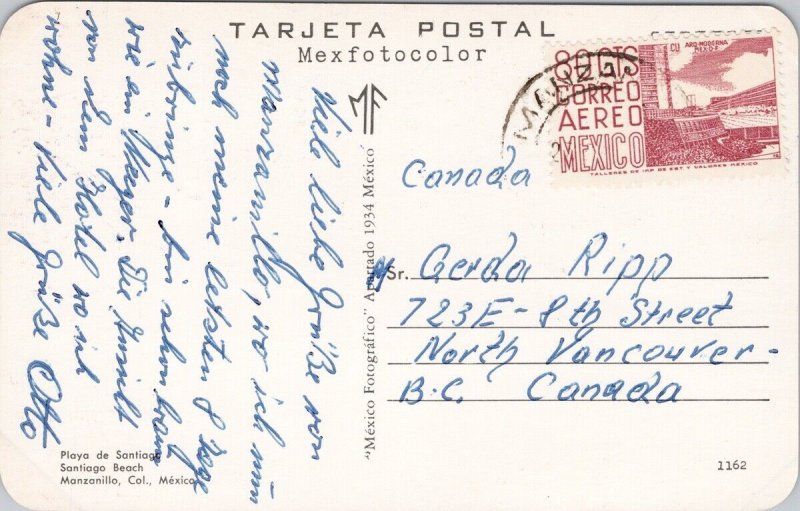 TARJETA POSTAL
Mexfotocolor
80 CTS
CORREO
AEREO
MEXICO
CU ARQ. MODERNA
MEX D.F.
TALLERES DE IMP. DE EST. Y VALORES MEXICO
MANZ
MF
Viele liebe Grüße von
Manzanillo, wo ich nun
noch meine letzten 8 Tage
zubringe - bin schon braun
wie ein Neger. Die Ansicht
von dem Hotel wo ich
wohne - Viele Grüße Otto
"México Fotográfico" Apartado 1934 México
Canada
Sr. Gerda Ripp
723 E - 8th Street
North Vancouver -
B.C. Canada
Playa de Santiago
Santiago Beach
Manzanillo, Col., México
1162